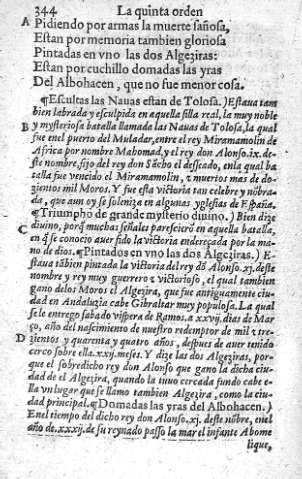 344 La quinta orden
A Pidiendo por armas la muerte sañosa,
Estan por memoria tambien gloriosa
Pintadas en vno las dos Algeziras:
Estan por cuchillo domadas las yras
Del Albohacen, que no fue menor cosa.
¶Escultas las Nauas estan de Tolosa.) Estaua tam
bien labrada y esculpida en aquella silla real, la muy noble
B y mysteriosa batalla llamada las Nauas de Tolosa, la qual
fue enel puerto del Muladar, entre el rey Miramamolin de
Africa por nombre Mahomad, y el rey don Alonso.ix. de-
ste nombre, fijo del rey don Sãcho el desseado, enla qual ba
talla fue vencido el Miramamolin, z muertos mas de do-
zientos mil Moros. Y fue esta victoria tan celebre y nõbra-
da, que aun oy se solẽniza en algunas yglesias de España.
¶Triumpho de grande mysterio diuino.) Bien dize
C diuino, porq̃ muchas señales parescierõ en aquella batalla,
en q̃ se conocio auer sido la victoria endereçada por la ma-
no de dios. ¶Pintados en vno las dos Algeziras.) E-
staua tãbien pintada la victoria del rey dõ Alonso.xj. deste
nombre y rey muy guerrero z victorioso, el qual tambien
gano delos Moros el Algezira, que fue antiguamente ciu-
dad en Andaluzia cabe Gibraltar muy populosa. La qual
se le entrego sabado vispera de Ramos.a.xxvij. dias de Mar
ço, año del nascimiento de nuestro redemptor de mil z tre-
D zientos y quarenta y quatro años, despues de auer tenido
cerco sobre ella.xxj.meses. Y dize las dos Algeziras, por-
que el sobredicho rey don Alonso que gano la dicha ciu-
dad de el Algezira, quando la tuuo cercada fundo cabe e-
lla vn lugar que se llamo tambien Algezira, como la ciu-
dad principal. ¶Domadas las yras del Albohacen.)
Enel tiempo del dicho rey don Alonso.xj. deste nõbre, enel
año de.xxxij.de su reynado passo la mar el infante Abome
lique,